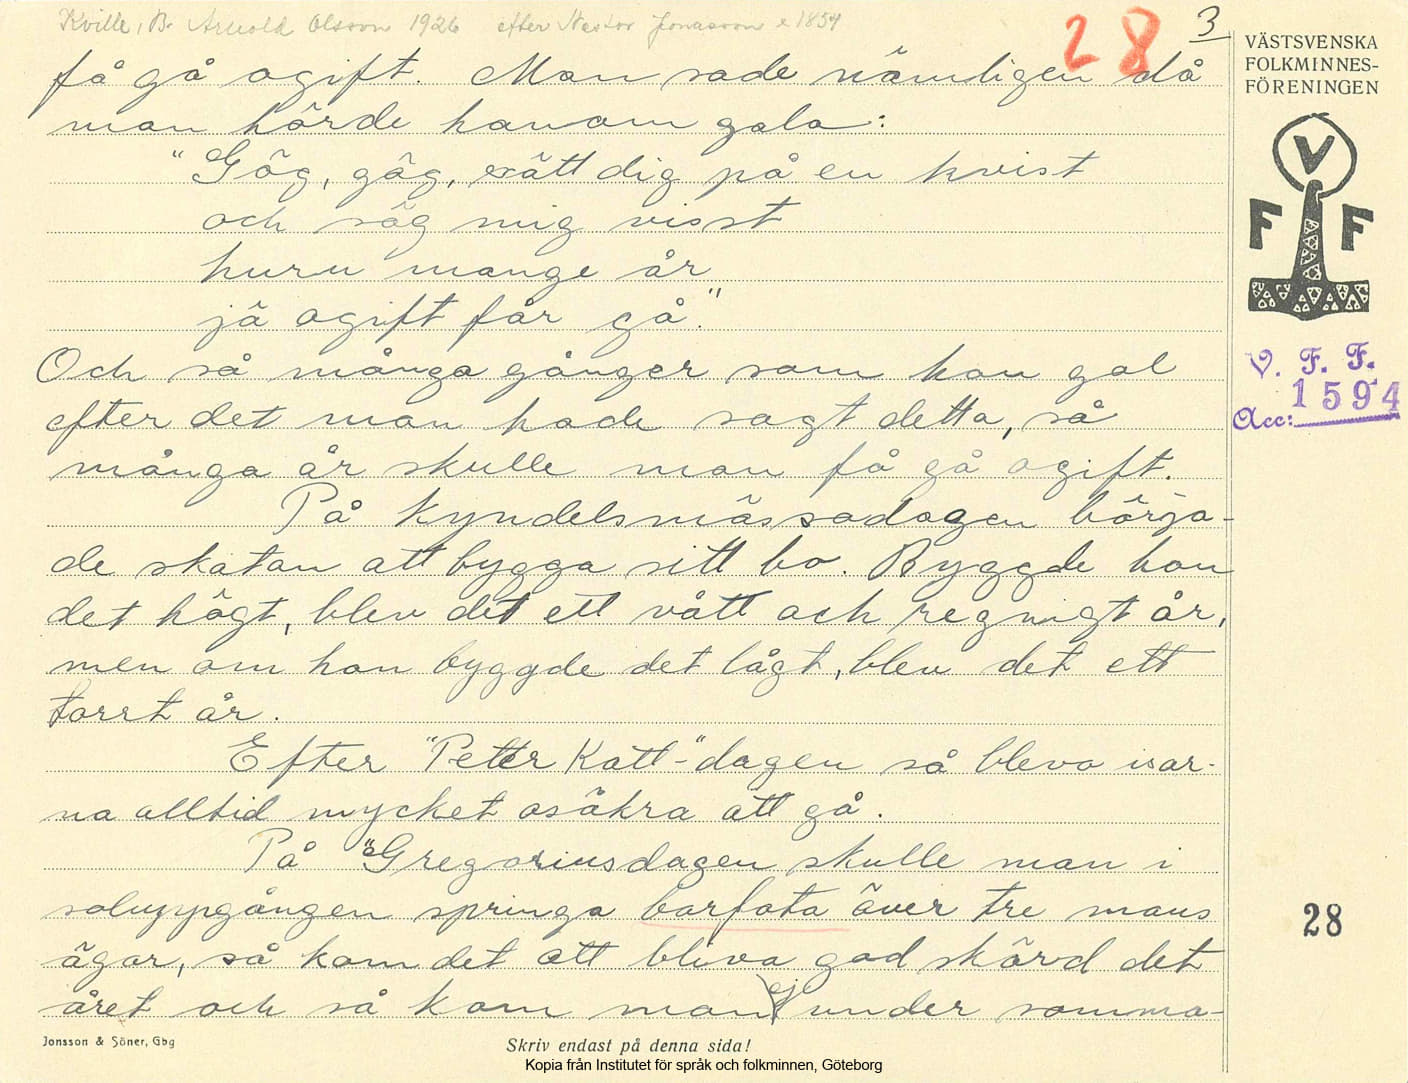 Kville, B. Arnold Olsson 1926 efter Nestor Jonasson f. 1854
28
3
få gå ogift. Man sade nämligen då
man hörde honom gala:
"Gög, gög, sätt dig på en kvist
och säg mig visst
huru mange år
jä ogift får gå."
Och så många gånger som han gol
efter det man hade sagt detta, så
många år skulle man få gå ogift.
På kyndelsmässodagen börja-
de skatan att bygga sitt bo. Byggde hon
det högt, blev det ett vått och regnigt år,
men om hon byggde det lågt, blev det ett
torrt år.
Efter "Petter Katt-"dagen så bleva isar-
na alltid mycket osäkra att gå.
På "Gregoriusdagen skulle man i
soluppgången springa barfota över tre mans
ägor, så kom det att bliva god skörd det
året och så kom man ej under somma-
VÄSTSVENSKA
FOLKMINNES-
FÖRENINGEN
V
F F
V. F. F.
1594
Acc:
28
Jonsson & Söner, Gbg
Skriv endast på denna sida!
Kopia från Institutet för språk och folkminnen, Göteborg